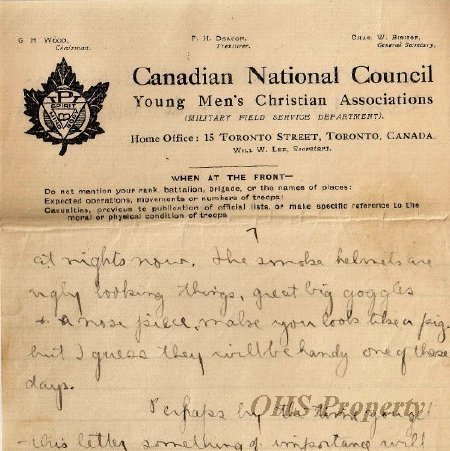 G. H. WOOD,
Chairman.
F. H. DEACON,
Treasurer.
CHAS. W. BISHOP,
General Secretary.
SPIRIT
MIND
BODY
Canadian National Council
Young Men's Christian Associations
(MILITARY FIELD SERVICE DEPARTMENT).
HOME OFFICE: 15 TORONTO STREET, TORONTO, CANADA.
WILL W. LEE, Secretary.
WHEN AT THE FRONT—
Do not mention your rank, battalion, brigade, or the names of places;
Expected operations, movements or numbers of troops;
Casualties, previous to publication of official lists, or make specific reference to the
moral or physical condition of troops
7
at nights now. The smoke helmets are
ugly looking things, great big goggles
+ a nose piece, make you look like a pig.
but I guess they will be handy one of these
days.
Perhaps by the time you get
this letter something of importance will
OHS Property